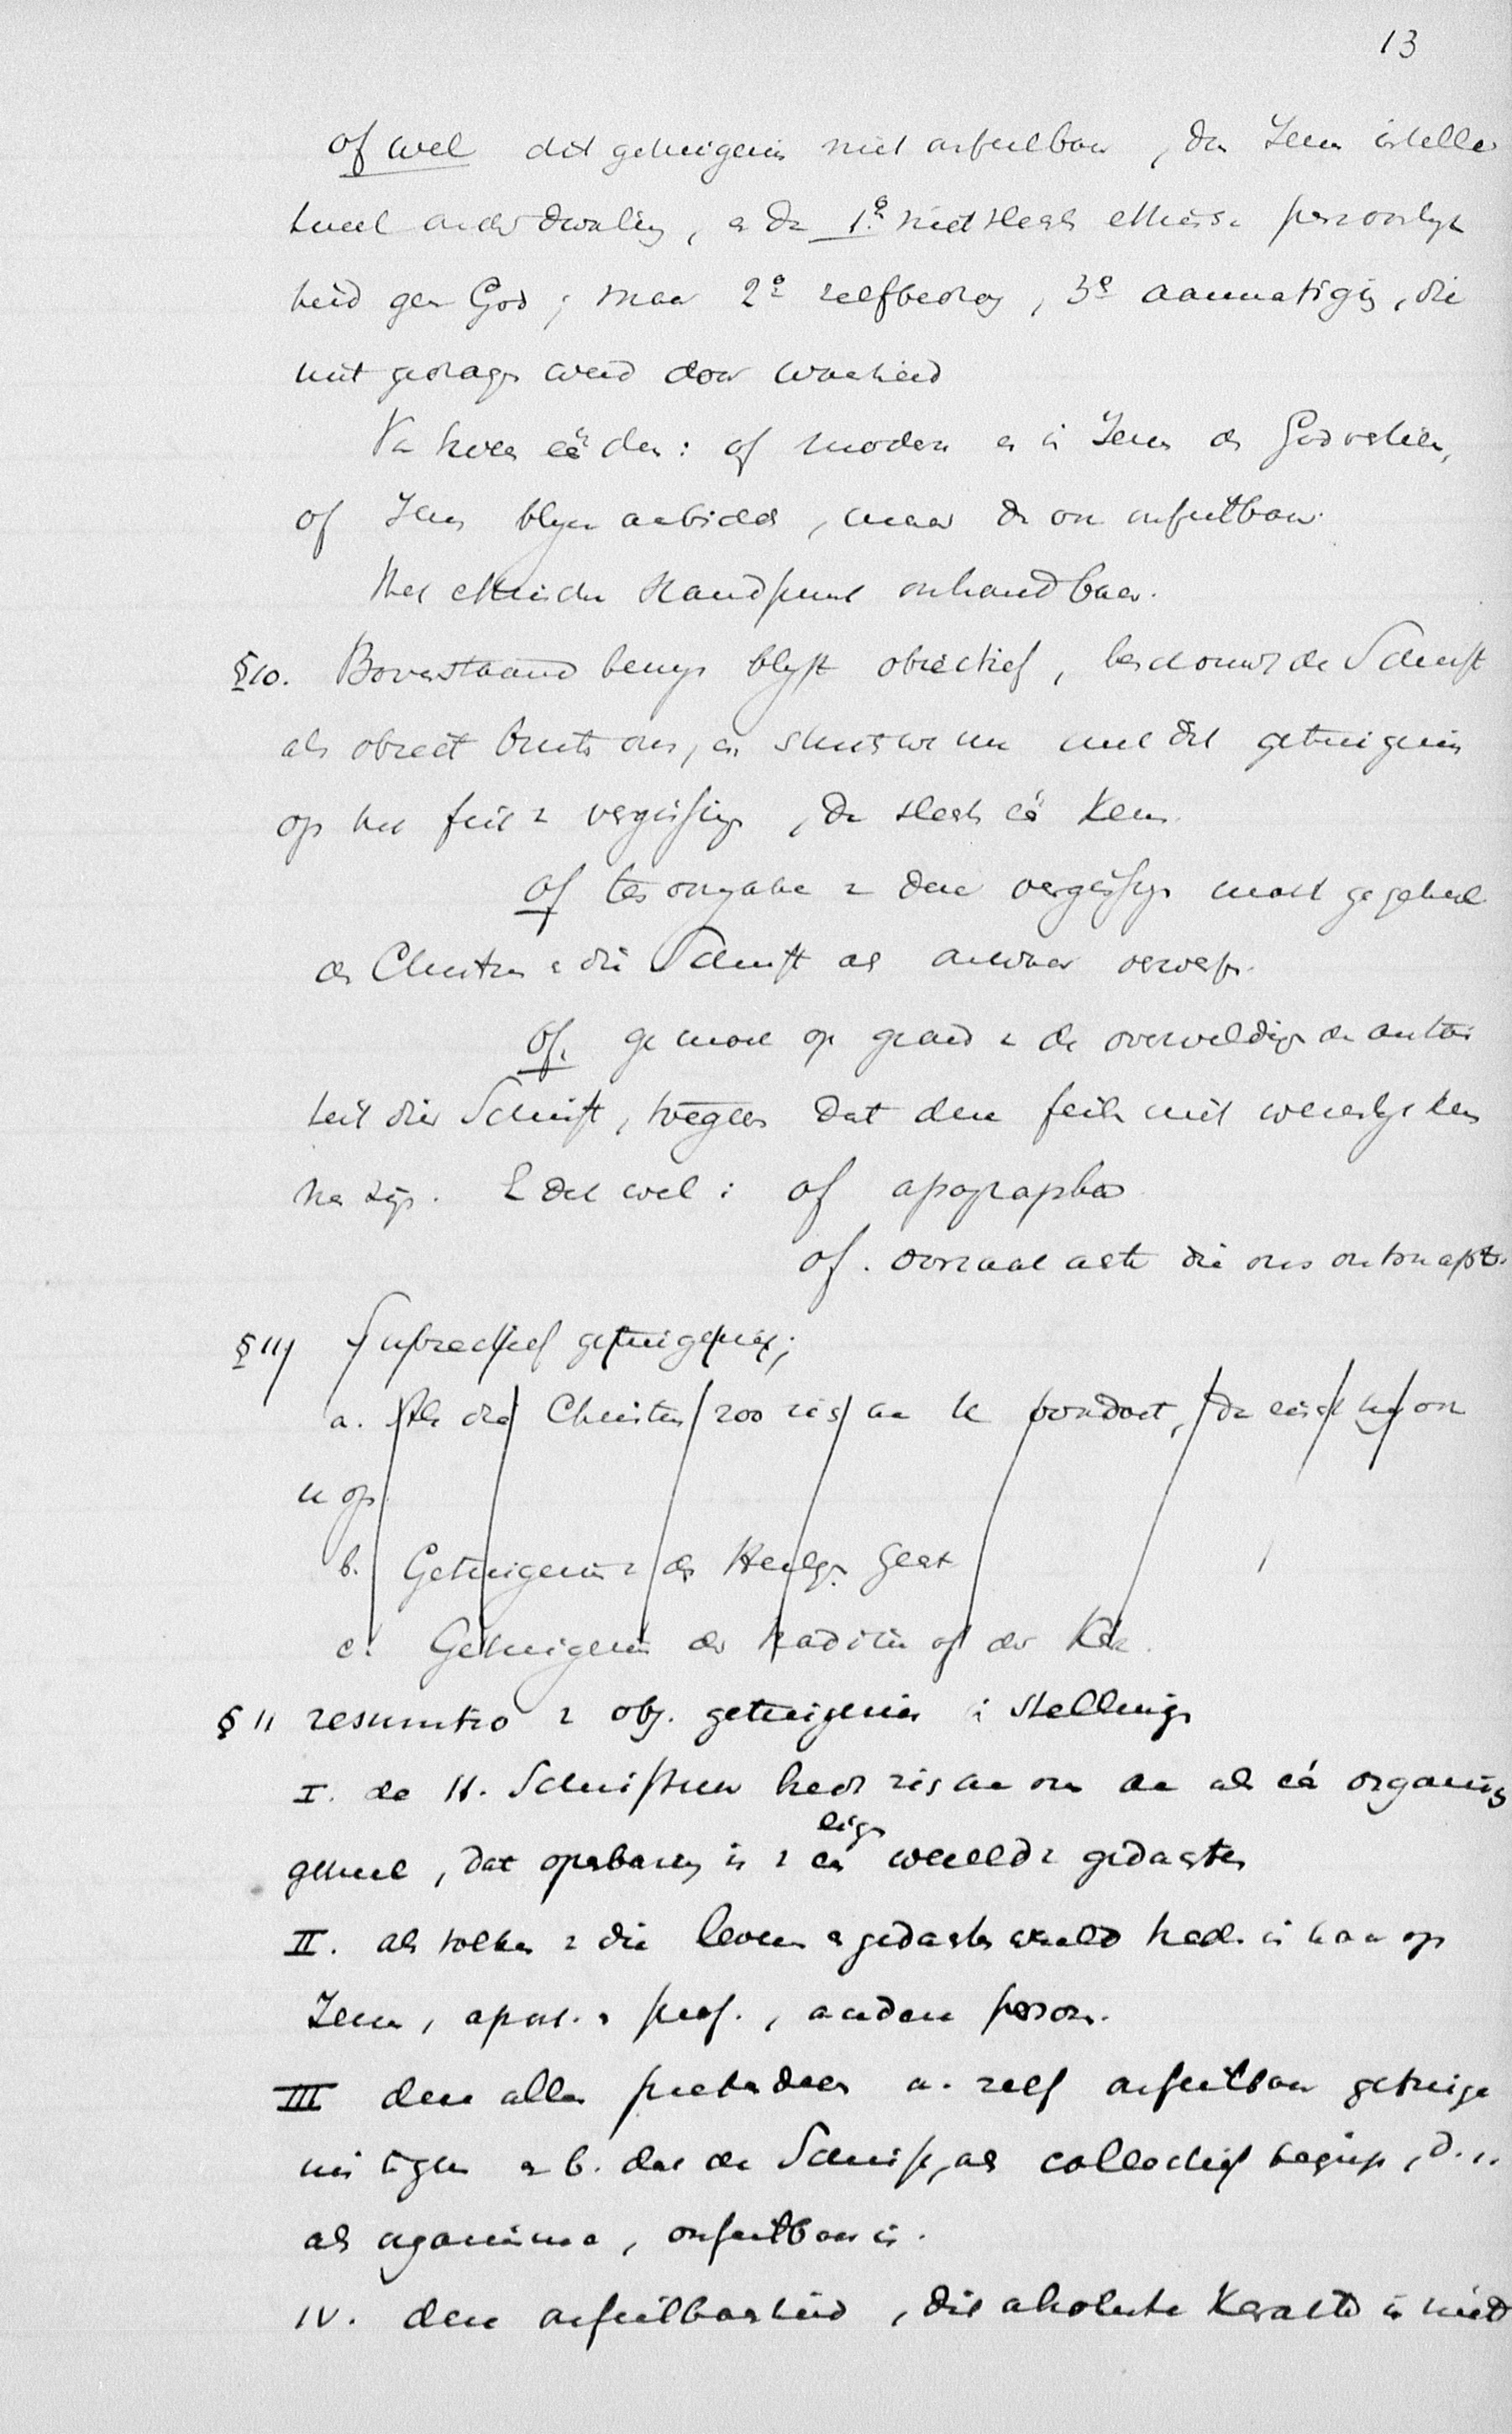 13
of wel dit getuigenis niet onfeilbaar, dan Jezus intellec
tueel onder dwaling, en dan 1º niet slechts ethische persoonlijk
heid geen God; maar 2º zelfbedrog, 3º aanmatiging, die
niet gedragen werd door waarheid
Van twee één dus: of modern en in Jezus de God verliezen,
of Jezus blijven aanbidden, maar dan ook onfeilbaar.
Het ethische standpunt onhoudbaar.
§10. Bovenstaand bewijs blijft objectief, beschouwt de Schrift
als object buiten ons, en we nu met dit getuigenis
op het feit v vergissing, dan slechts één keus
of ten v deze vergissing moet ge geheel
de Christus en die Schrift als onwaar verwerpen.
of. ge moet op grond v de overweldigende autori
teit dier Schrift, zeggen dat deze feilen niet wezenlijk ken
zijn. En dit wel: of apographa
of. oorzaak achter die ons ontsnapt.
§11 Subjectief getuigenis;
a. Als die Christus zoo zich aan u voordoet, dan eischt hij ook
u op
b. Getuigenis v den Heilige Geest
c. Getuigenis der traditie of der Kerk.
§11 resumtio v obj. getuigenis in stellingen
I. de H. Schriftuur biedt zich aan ons aan als één organisch
geheel, dat openbaring is v een eigen wereld v gedachten
II. als tolken v die levens en gedachten wereld treden in haar op
Jezus, apost. en prof., andere person.
III deze allen pretendeeren a. zelf onfeilbaar getuige
nis en b. dat de Schrift, als collectief begrip, d.i.
als organisme, onfeilbaar is.
IV. deze onfeilbaarheid, dit absolute karakter is niet